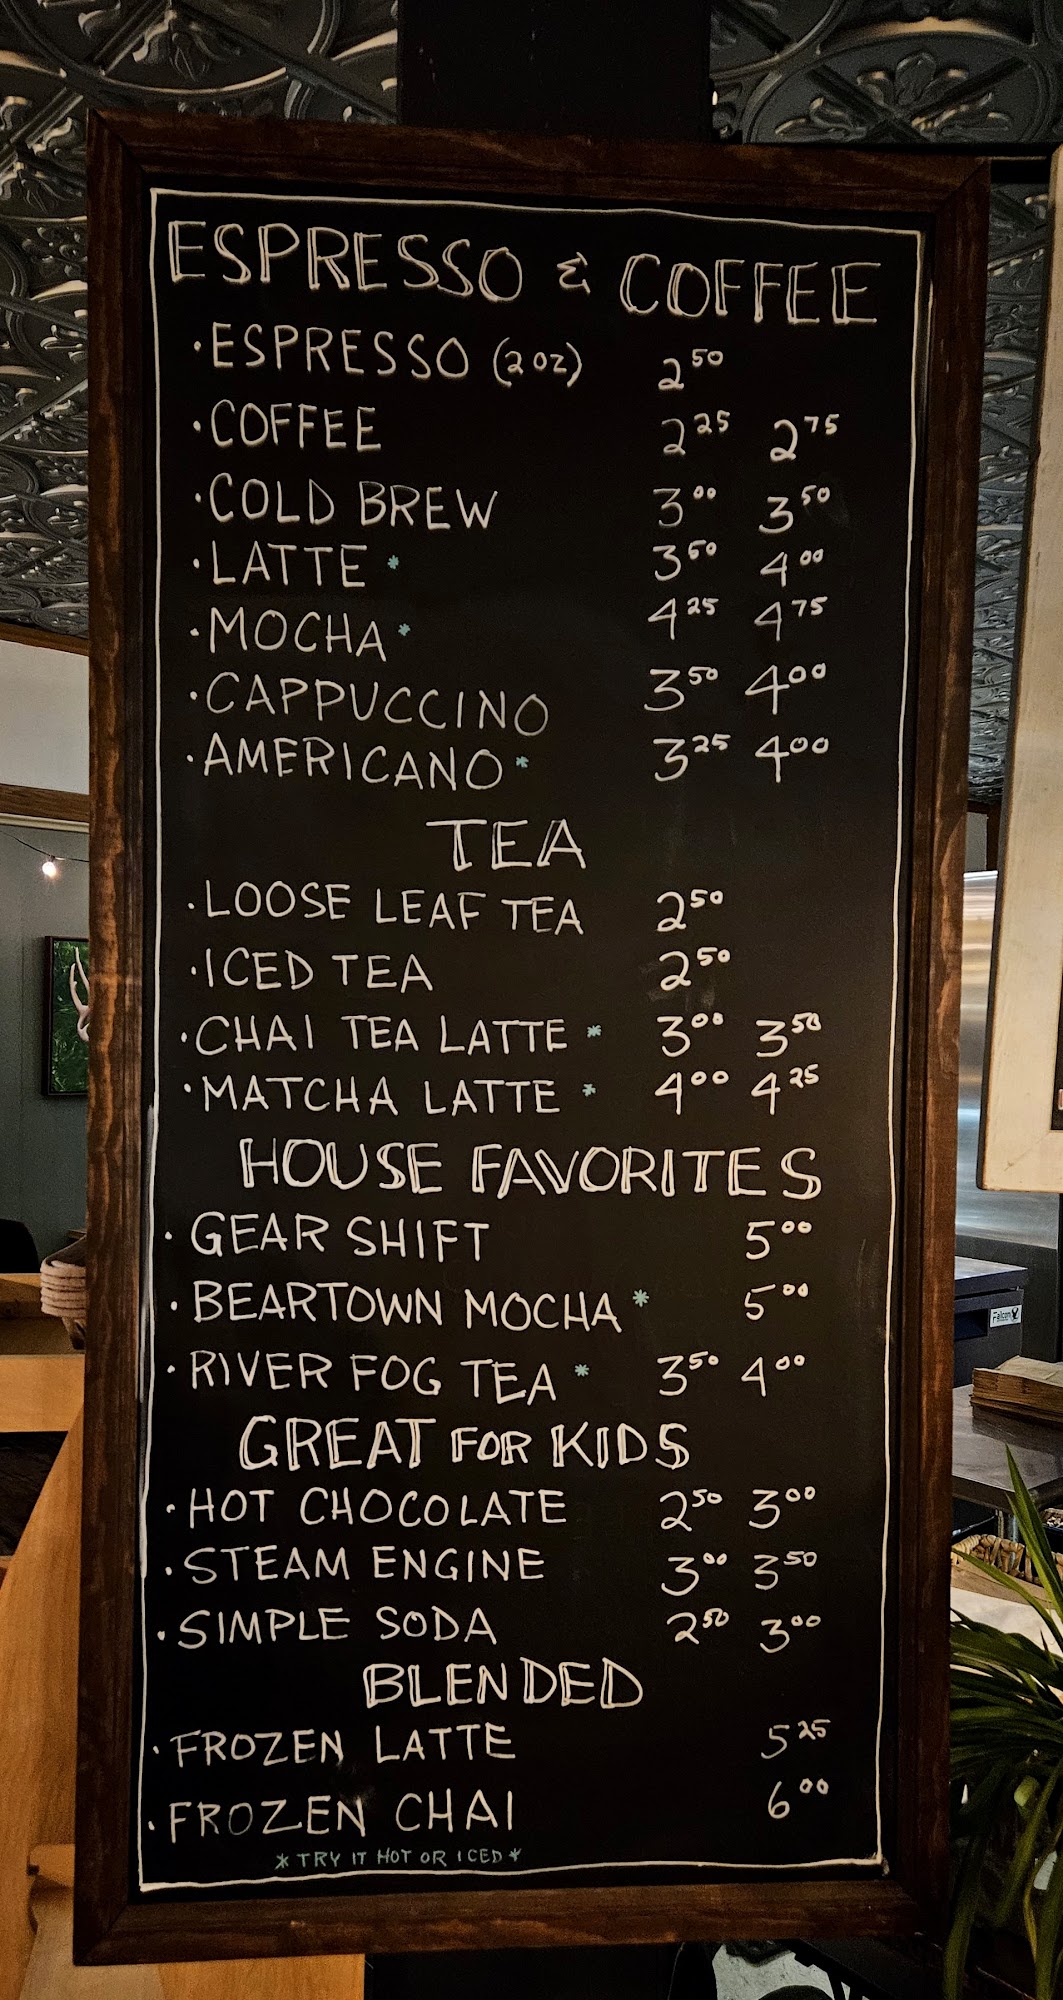 ESPRESSO & COFFEE
·ESPRESSO (2 OZ) 2⁵⁰
·COFFEE 2²⁵ 2⁷⁵
·COLD BREW 3⁰⁰ 3⁵⁰
·LATTE * 3⁵⁰ 4⁰⁰
·MOCHA * 4²⁵ 4⁷⁵
·CAPPUCCINO 3⁵⁰ 4⁰⁰
·AMERICANO * 3²⁵ 4⁰⁰
TEA
·LOOSE LEAF TEA 2⁵⁰
·ICED TEA 2⁵⁰
·CHAI TEA LATTE * 3⁰⁰ 3⁵⁰
·MATCHA LATTE * 4⁰⁰ 4²⁵
HOUSE FAVORITES
·GEAR SHIFT 5⁰⁰
·BEARTOWN MOCHA * 5⁰⁰
·RIVER FOG TEA * 3⁵⁰ 4⁰⁰
GREAT FOR KIDS
·HOT CHOCOLATE 2⁵⁰ 3⁰⁰
·STEAM ENGINE 3⁰⁰ 3⁵⁰
·SIMPLE SODA 2⁵⁰ 3⁰⁰
BLENDED
·FROZEN LATTE 5²⁵
·FROZEN CHAI 6⁰⁰
* TRY IT HOT OR ICED *
Falcon